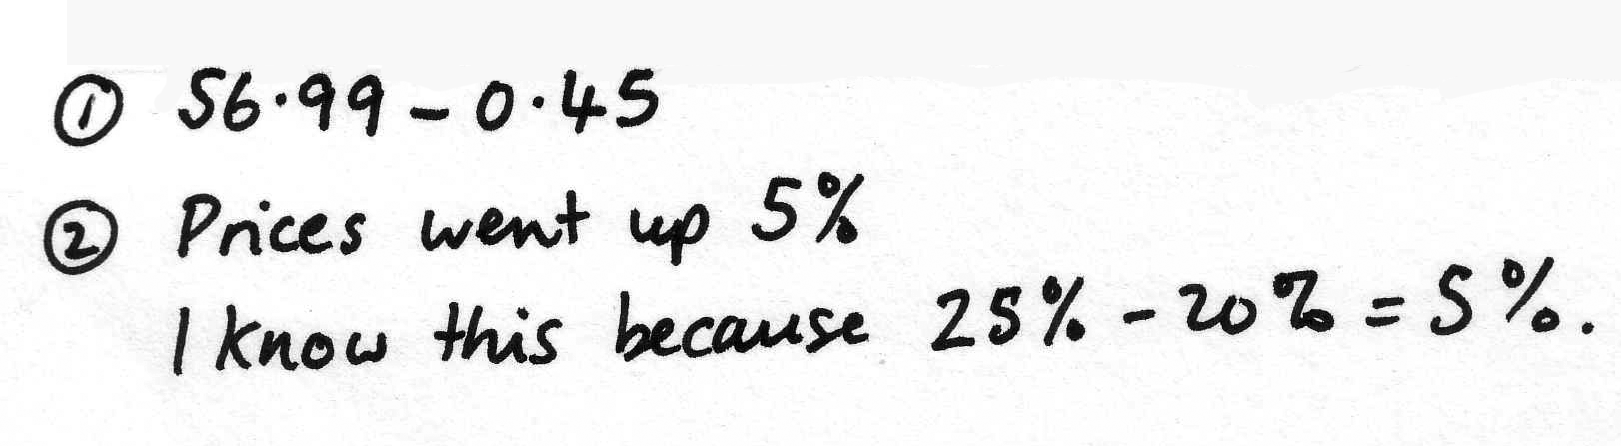 ① 56.99 - 0.45
② Prices went up 5%
I know this because 25% - 20% = 5%.